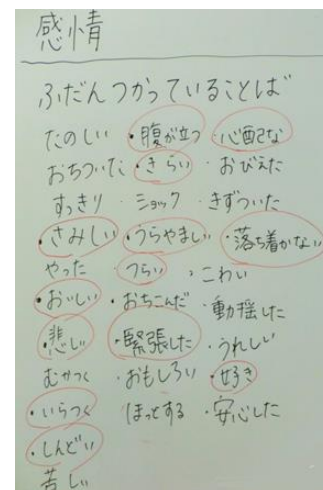 感情
ふだんつかっていることば
たのしい ・腹が立つ ・心配な
おちついた ・きらい ・おびえた
すっきり ・ショック ・きずついた
・さみしい ・うらやましい ・落ち着かない
やった ・つらい ・こわい
・おいしい ・おちこんだ ・動揺した
・悲しい ・緊張した ・うれしい
むかつく ・おもしろい ・好き
・いらつく ほっとする ・安心した
・しんどい
苦しい